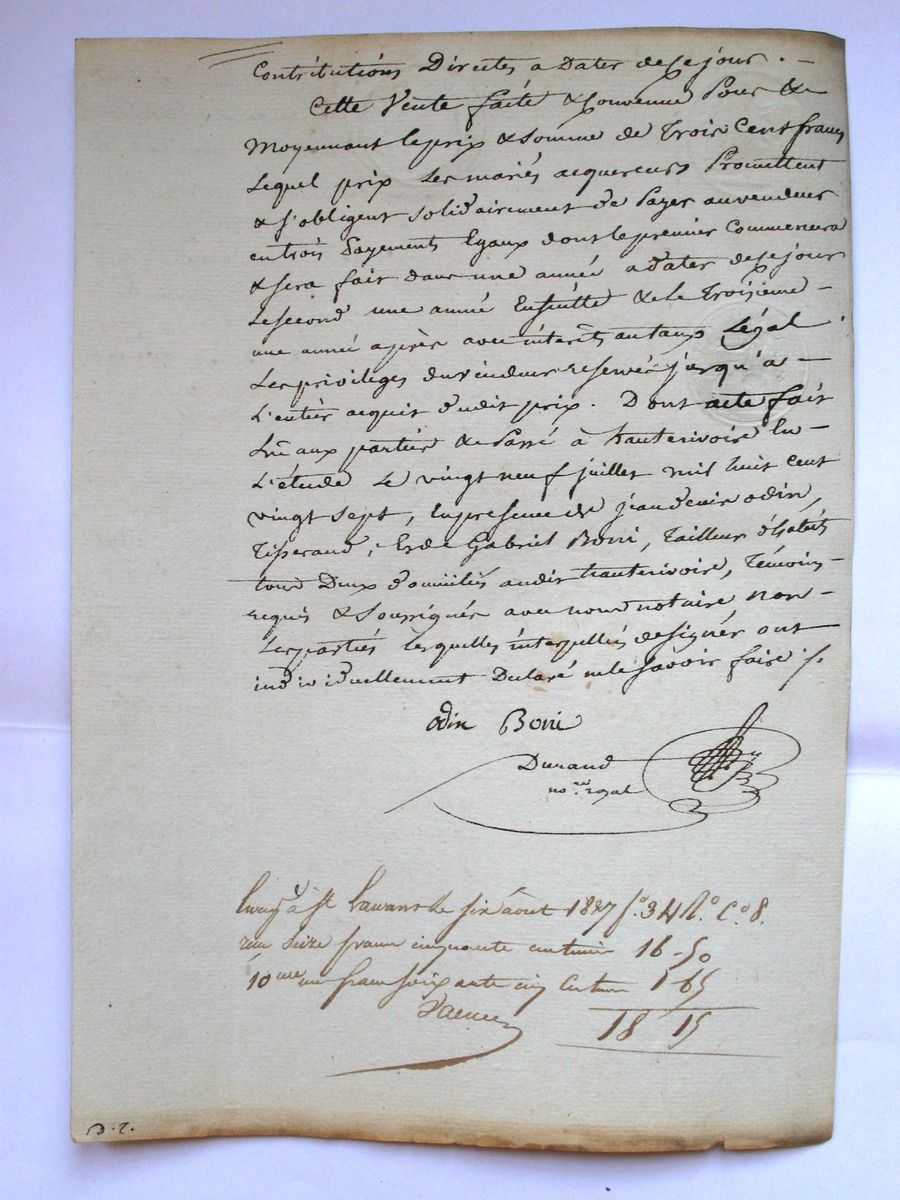 Contributions Directes a Dater de ce jour . —
Cette Vente faite & Convenue Pour &
Moyennant le prix & Somme de Trois Cent francs
Lequel prix Les mariés acquereurs Promettent
& S'obligent solidairement de Payer au vendeur
en trois Payements Egaux dont le premier Commencera
& sera fait dans une année a dater de ce jour
Le second une année Ensuitte & le Troisieme —
une année après avec intérêts au taux Légal .
Les privileges du vendeur reservés jusqu'a —
L'entier acquit dudit prix . Dont acte fait
Lu aux parties & Passé à hauterivoire En —
L'étude Le vingt neuf juillet mil huit cent
vingt sept, En presence de jean denis odin,
Tisserand, & de Gabriel Boni, Tailleur d'habits
tous Deux domiciliés audit hauterivoire, Témoins
requis & Soussignés avec nous notaire non —
Les parties Lesquelles interpellées de signer ont
individuellement Declaré ne le savoir faire ./.
odin Boni
Durand
no.re royal
Enreg. à St Laurent le six août 1827 f.o 34 R.o C.o 8.
reçu seize francs cinquante centimes 16-50
10eme un franc soixante cinq centimes 1-65
18 15
D.r.